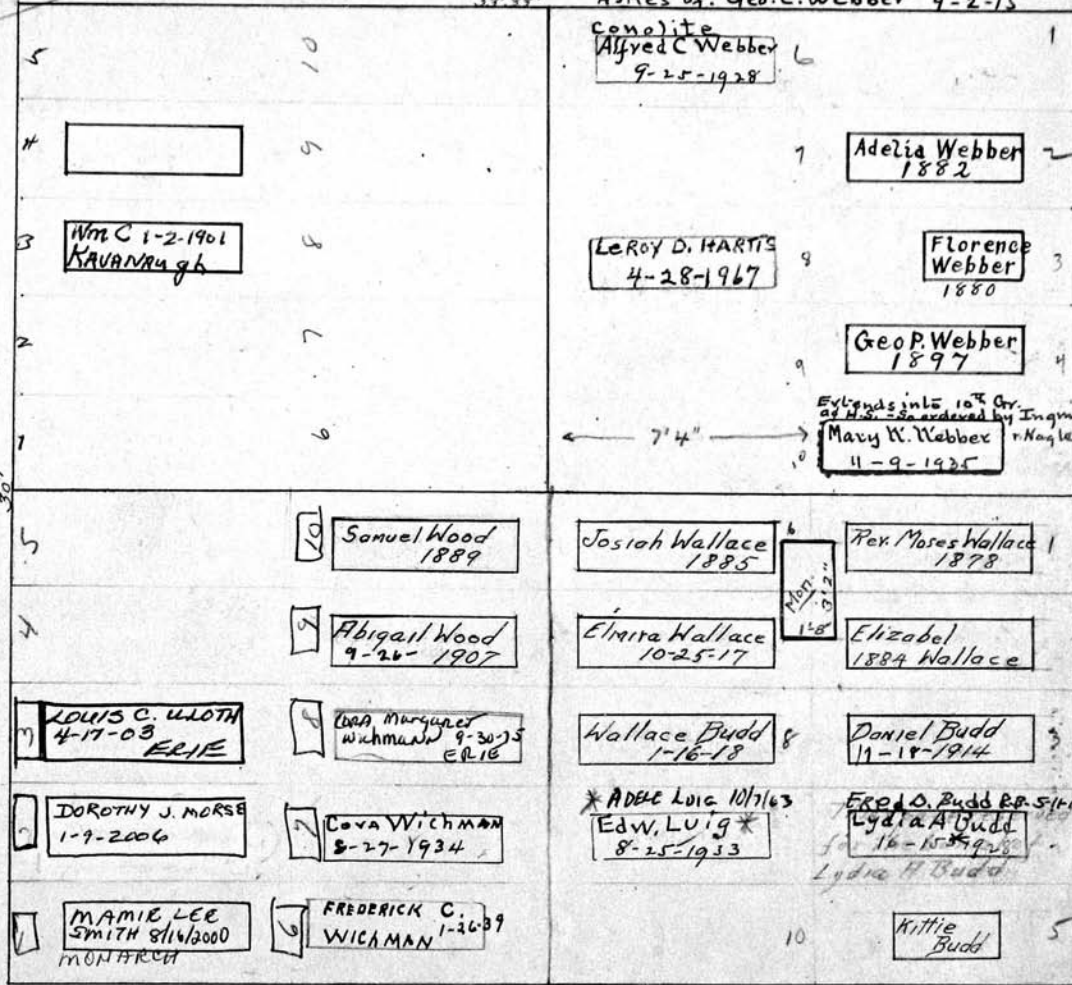 Ashes of: Geo. C. Webber 9-2-15
5
10
Conolite
Alfred C Webber
9-25-1928
6
1
4
9
7
Adelia Webber
1882
2
3
Wm C 1-2-1901
KAVANAugh
8
LeROY D. HARTIS
4-28-1967
8
Florence
Webber
1880
3
2
7
9
Geo P. Webber
1897
4
1
6
7'4"
10
Extends into 10th Gr.
of H.S. - So ordered by
Mary W. Webber
11-9-1935
30'
5
10
Samuel Wood
1889
Josiah Wallace
1885
6
Mon.
3'2"
1'-8"
Rev. Moses Wallace
1878
1
4
9
Abigail Wood
9-26-1907
Elmira Wallace
10-25-17
Elizabel
1884 Wallace
3
LOUIS C. ULOTH
4-17-03
ERIE
8
CORA Margaret
Wichmann 9-30-75
ERIE
Wallace Budd
1-16-18
8
Daniel Budd
11-18-1914
3
2
DOROTHY J. MORSE
1-9-2006
7
Cora WichMAN
5-27-1934
* ADELE Luig 10/7/63
Edw. Luig *
8-25-1933
Fred D. Budd
Lydia A Budd
Lydia A Budd
1
MAMIE LEE
SMITH 8/16/2000
MONARCH
6
FREDERICK C.
WICHMAN 1-26-39
10
Kittie
Budd
5